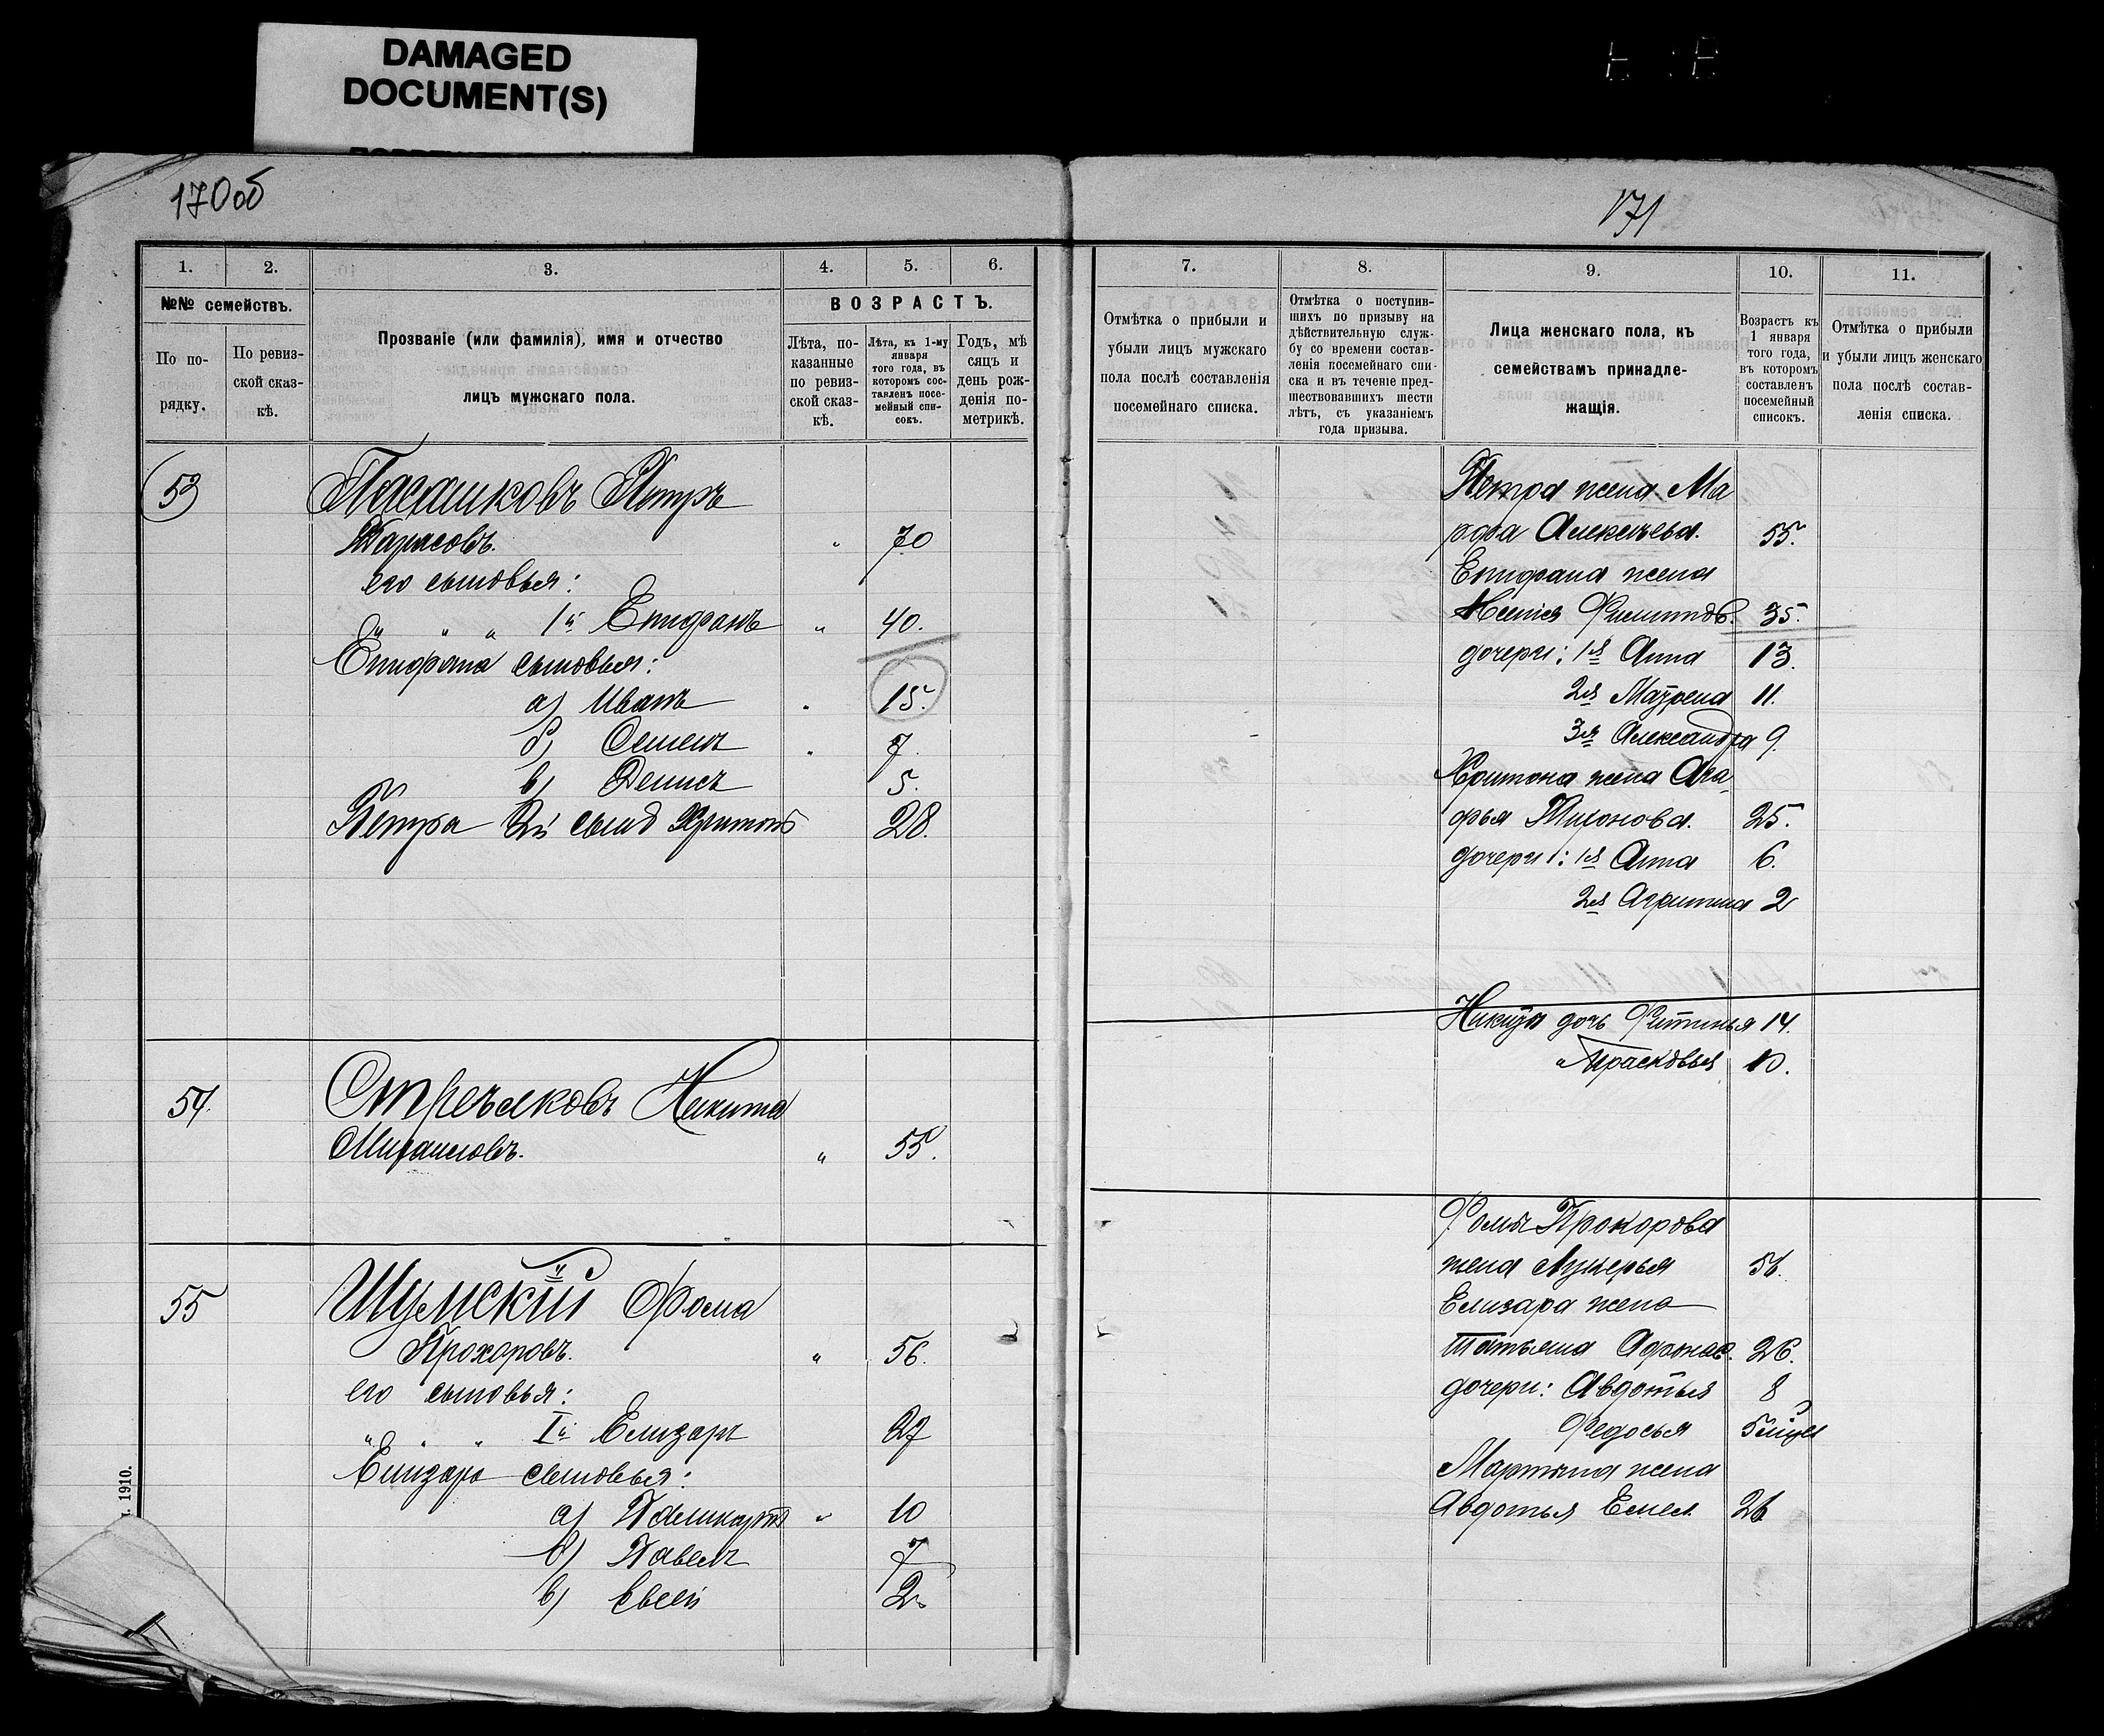 DAMAGED
DOCUMENT(S)
170об
171
1.
2.
3.
4.
5.
6.
№№ семействъ.
По по-
рядку.
По ревиз-
ской сказ-
кѣ.
Прозваніе (или фамилія), имя и отчество
лицъ мужскаго пола.
ВОЗРАСТЪ.
Лѣта, по-
казанные
по ревиз-
ской сказ-
кѣ.
Лѣта, къ 1-му
января
того года, въ
которомъ сос-
тавленъ посе-
мейный спи-
сокъ.
Годъ, мѣ
сяцъ и
день рож-
денія по-
метрикѣ.
53
Петръ
Тарасовъ. " 70
его сыновья:
" " " 1й Епифанъ " 40.
Епифана сыновья:
а) Иванъ " 15.
б) Семенъ " 7.
в) Денисъ 5.
Петра 2й сынъ Харитонъ 28.
54. Стрелковъ Никита
Михаиловъ. " 55.
55 Шумскій Фома
Прохоровъ. " 56.
его сыновья:
" " " Iй Елизаръ 27
Елизара сыновья:
а) " 10
б) Павелъ 7
в) Евсей 2
1910.
7.
8.
9.
10.
11.
Отмѣтка о прибыли и
убыли лицъ мужскаго
пола послѣ составленія
посемейнаго списка.
Отмѣтка о поступив-
шихъ по призыву на
дѣйствительную служ-
бу со времени состав-
ленія посемейнаго спи-
ска и въ теченіе пред-
шествовавшихъ шести
лѣтъ, съ указаніемъ
года призыва.
Лица женскаго пола, къ
семействамъ принадле-
жащія.
Возрастъ къ
1 января
того года,
въ которомъ
составленъ
посемейный
списокъ.
Отмѣтка о прибыли
и убыли лицъ женскаго
пола послѣ состав-
ленія списка.
Петра жена Ма
рфа Алексѣева. 55.
Епифана жена
Ксенія 35.
дочери: 1я Анна 13.
2я Маѳрена 11.
3я Александра 9
Харитона жена Ага
фья Тихонова. 25.
дочери: 1я Анна 6.
2я 2
Никиты дочь Фетинья 14.
" Прасковья 10.
Фомы Прохорова
жена Лукерья 56.
Елизара жена
Татьяна Афонас. 26.
дочери: Авдотья 8
Федосья
Мартына жена
Авдотья Емел. 26